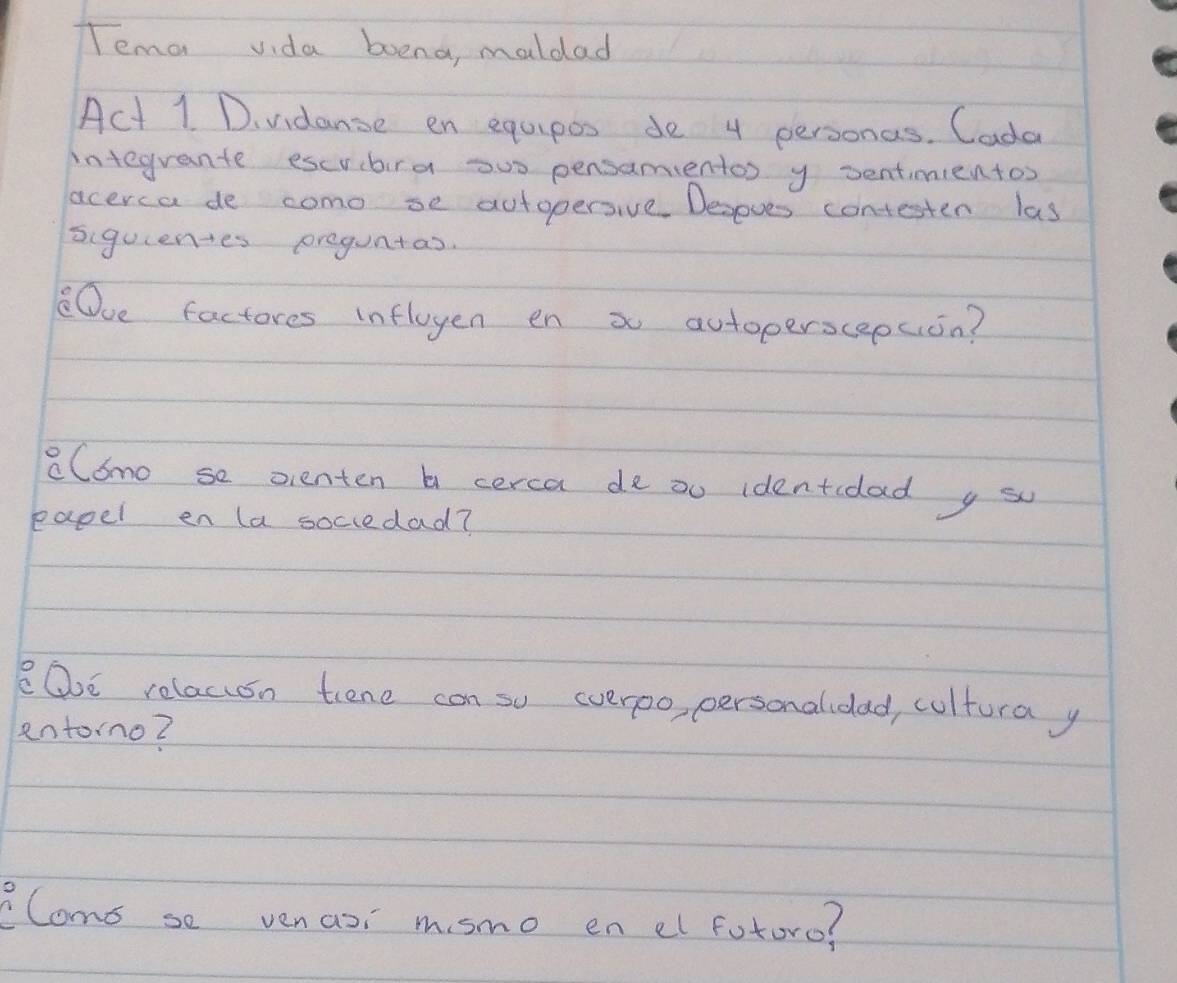 Tema vida buena, maldad
Act 1. Dividanse en equipos de 4 personas. Cada
integrante escribira sus pensamientos y sentimientos
acerca de como se autopersive. Despues contesten las
siguientes preguntas.
¿Que factores influyen en su autoperscepción?
¿Cómo se sienten a cerca de su identidad y su
papel en la sociedad?
¿Qué relación tiene con su cuerpo, personalidad, cultura y
entorno?
¿Comó se ven así mismo en el futuro?